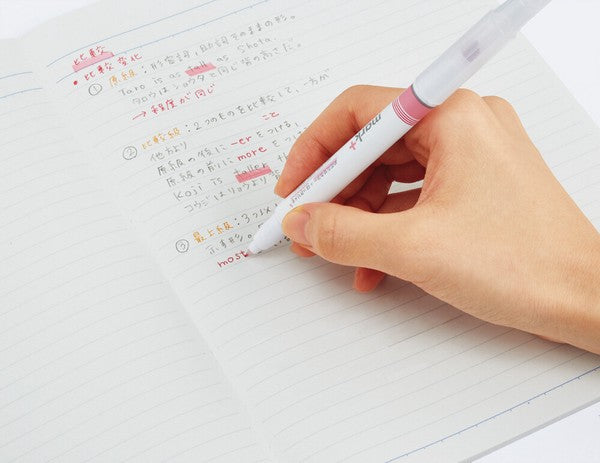 比較
・比較変化
① 原級：形容詞,副詞そのままの形。
Taro is as tall as Shota.
タロウはショウタと同じ背の高さだ。
→ 程度が同じ
② 比較級：2つのものを比較して、一方が
他より こと
原級の後に -er をつける,
原級の前に more をつける
Koji is taller th
コウジはリョウより
③ 最上級：3つ以
ふす形。
most
mark+